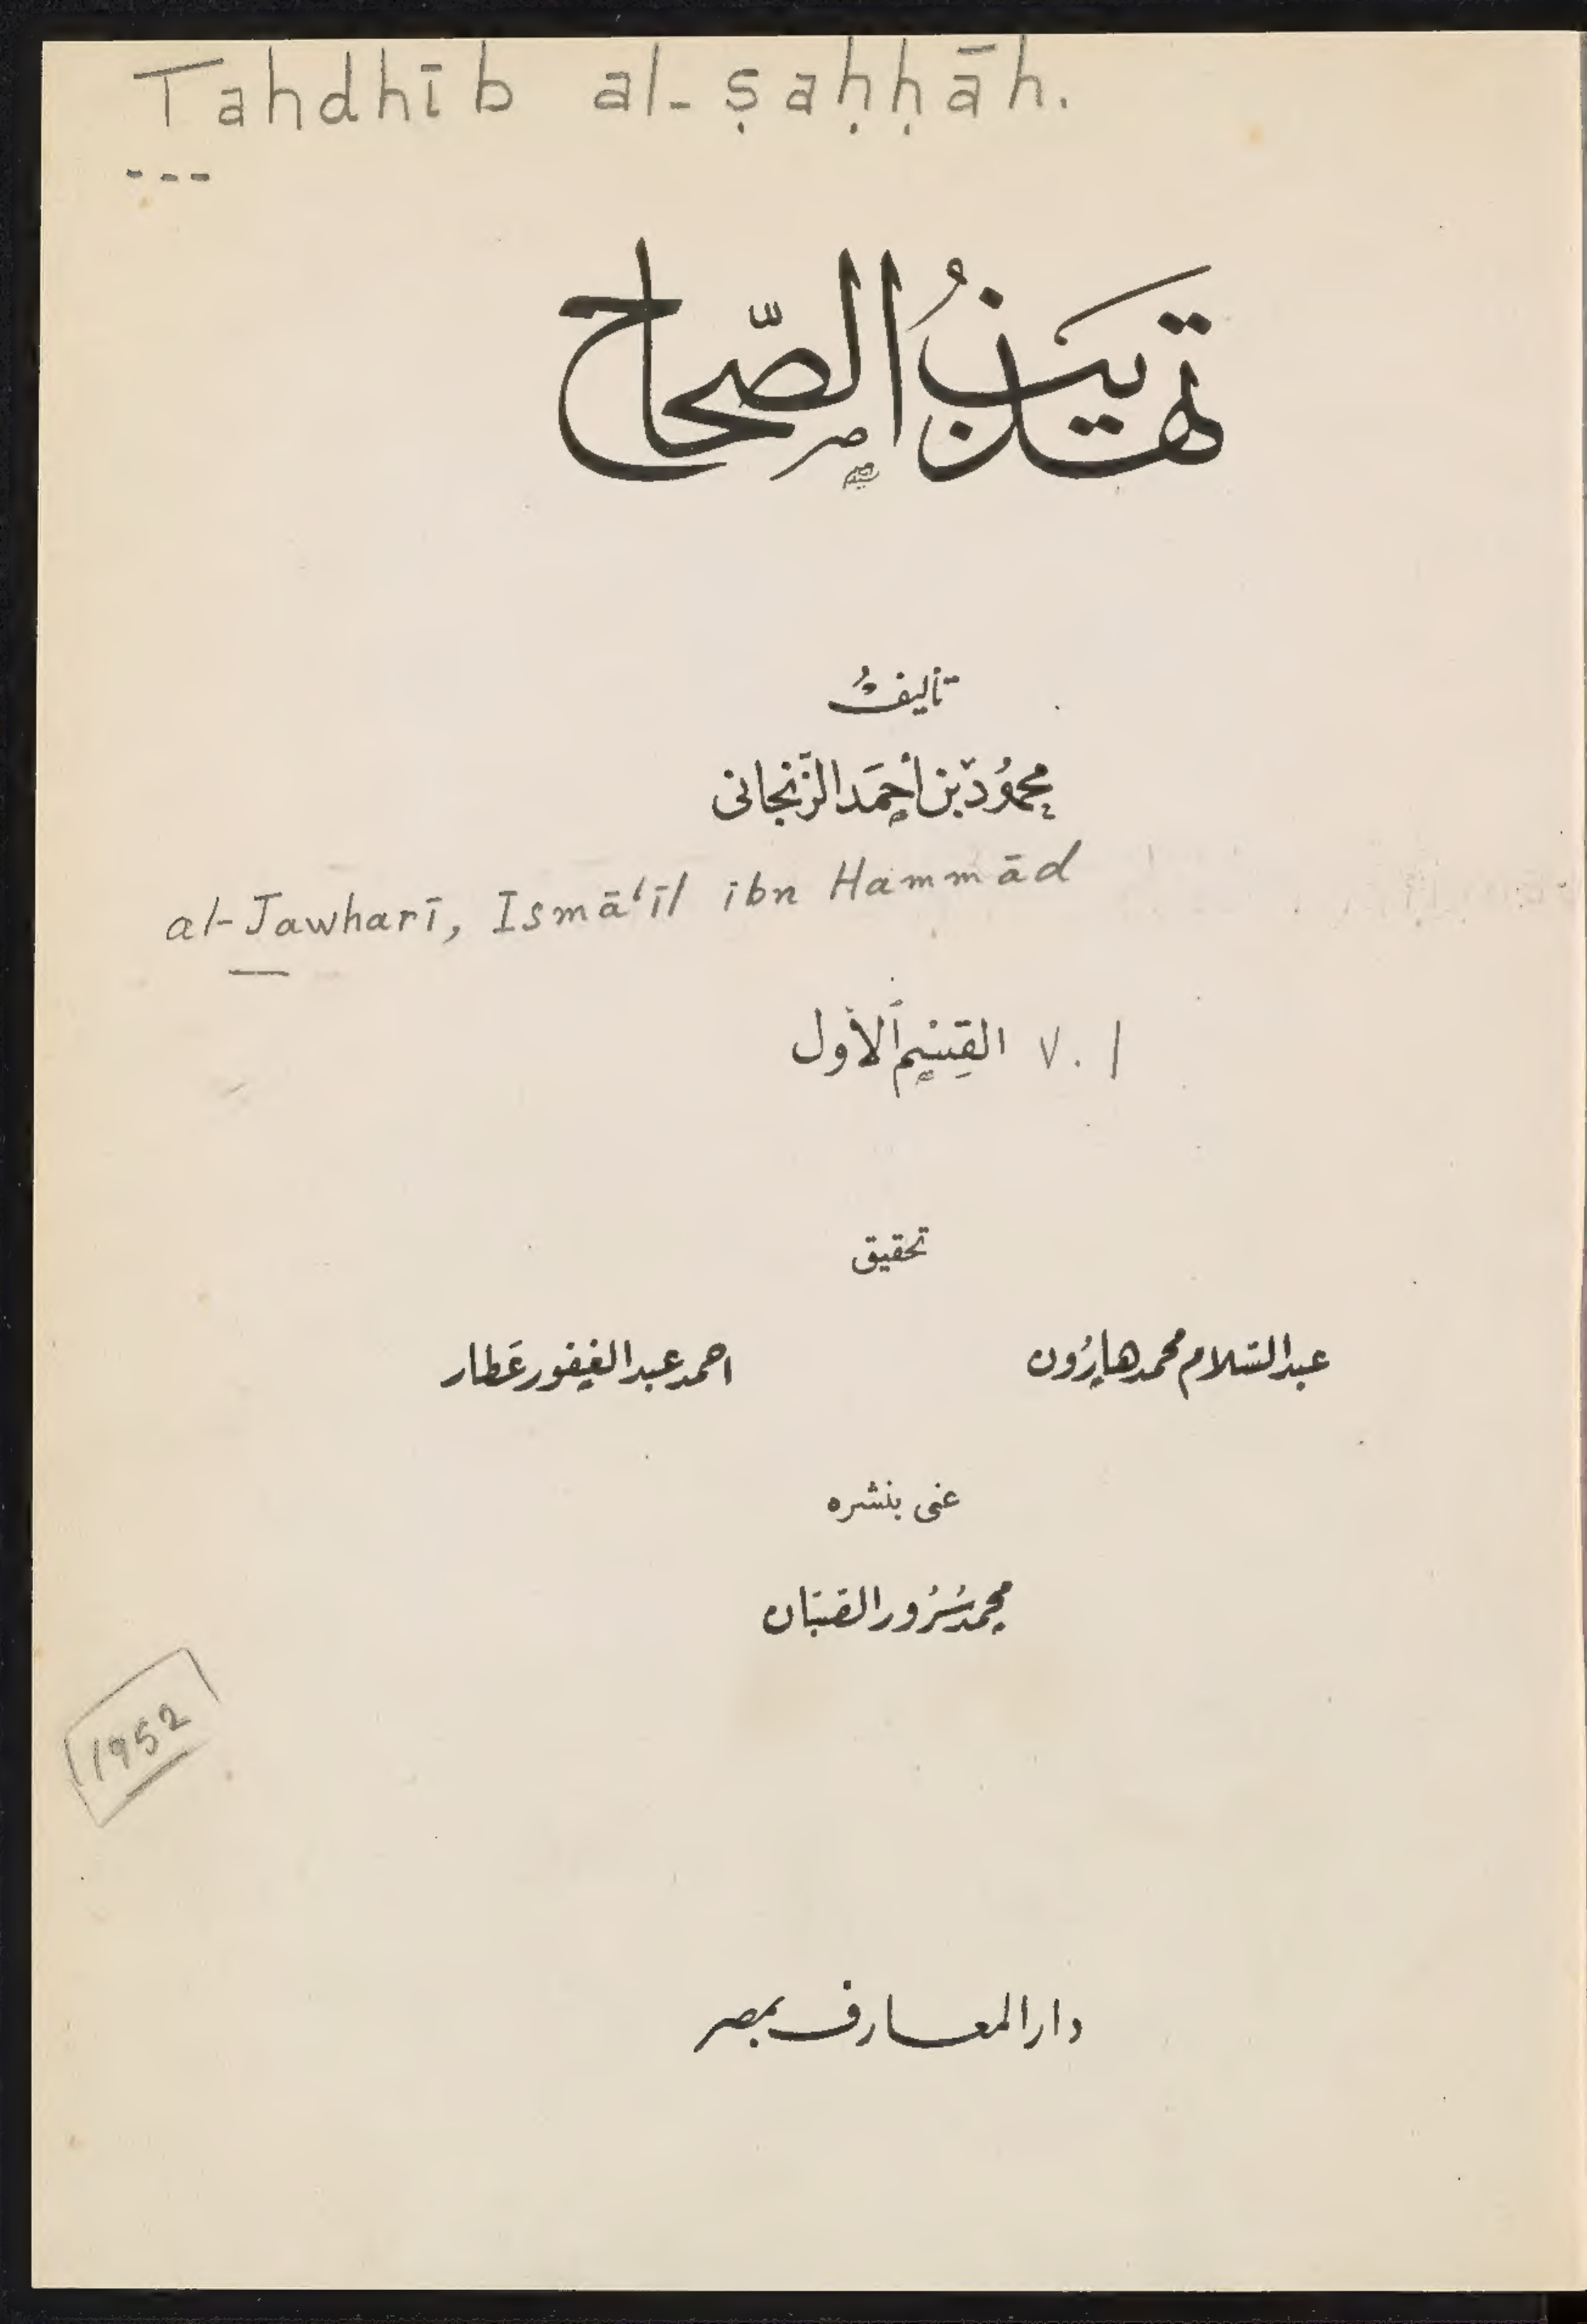 Tahdhīb al-ṣaḥḥāh.
تهذيبُ الصّحاح
تأليفُ
محمُود بن أحمَد الزّنجانى
al-Jawharī, Ismā'īl ibn Hammād
القِسْم الأول v. 1
تحقيق
عبد السّلام محمد هارُون احمد عبد الغفور عَطار
عنى بنشره
محمد سُرُور الصّبّان
1952
دار المعارف بمصر